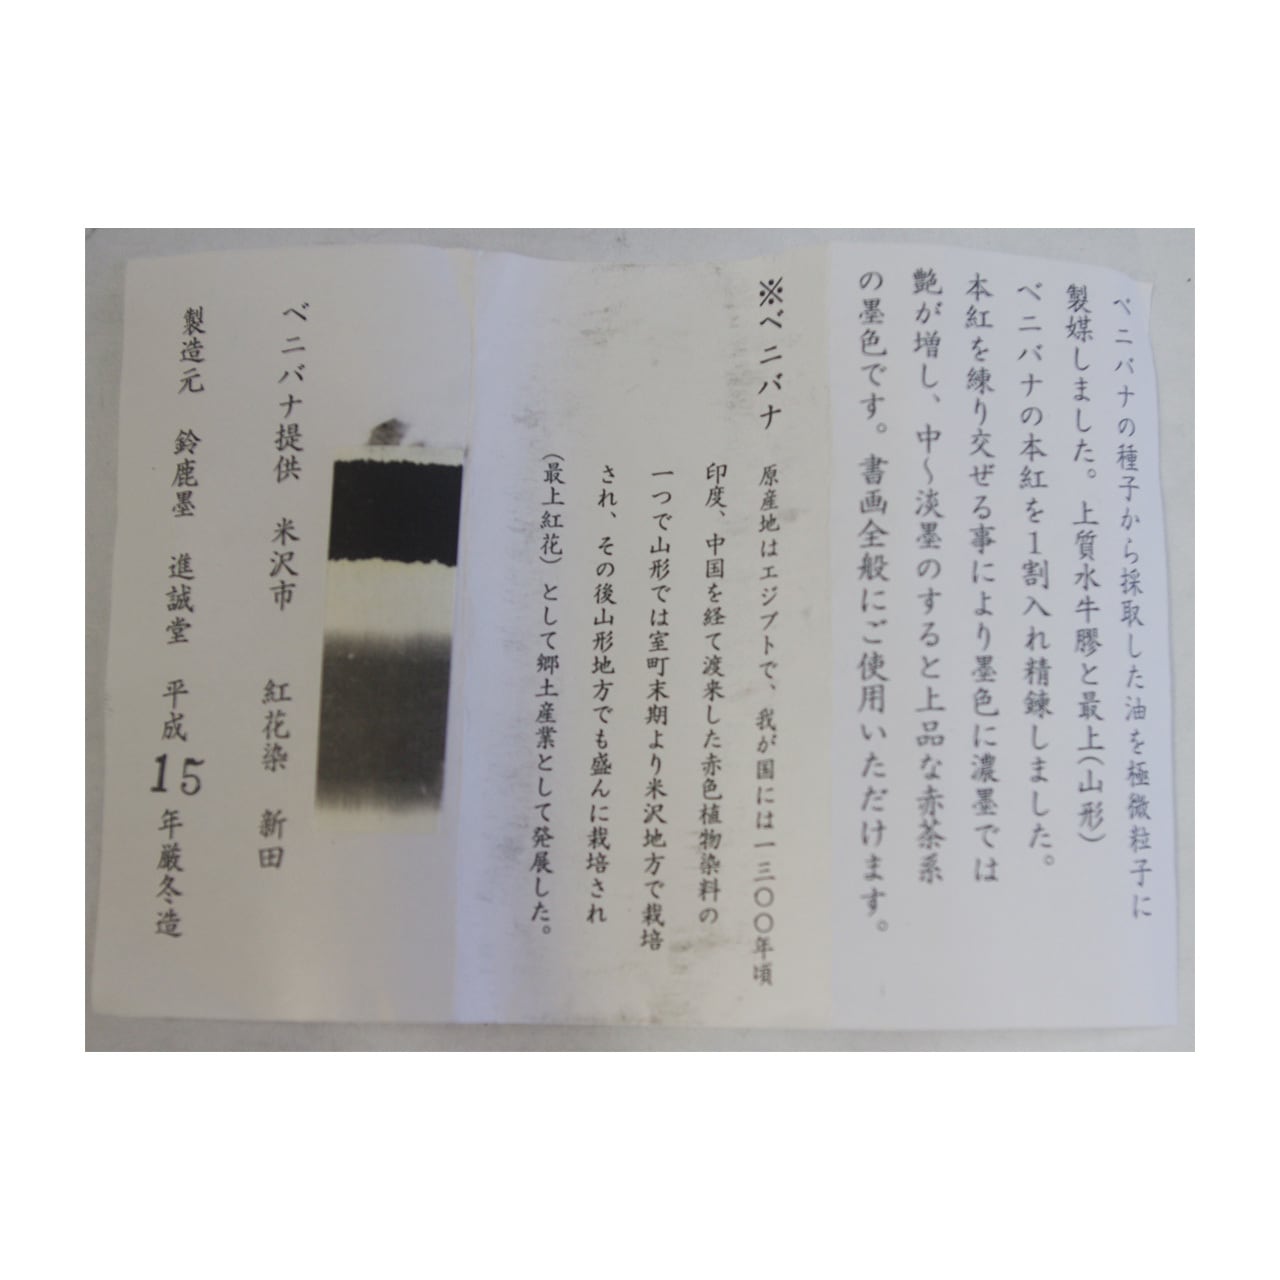 ベニバナの種子から採取した油を極微粒子に
製媒しました。上質水牛膠と最上(山形)
ベニバナの本紅を1割入れ精錬しました。
本紅を練り交ぜる事により墨色に濃墨では
艶が増し、中~淡墨のすると上品な赤茶系
の墨色です。書画全般にご使用いただけます。
※ベニバナ 原産地はエジプトで、我が国には一三〇〇年頃
印度、中国を経て渡来した赤色植物染料の
一つで山形では室町末期より米沢地方で栽培
され、その後山形地方でも盛んに栽培され
(最上紅花)として郷土産業として発展した。
ベニバナ提供 米沢市 紅花染 新田
製造元 鈴鹿墨 進誠堂 平成15年厳冬造